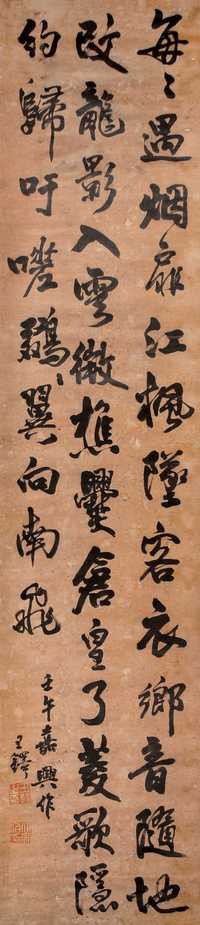 每〻遇烟扉江楓墜客衣鄉音隨地
改龍影入雲微樵爨倉皇了菱歌隱
約歸吁嗟〻翼向南飛
壬午嘉興作
王鐸